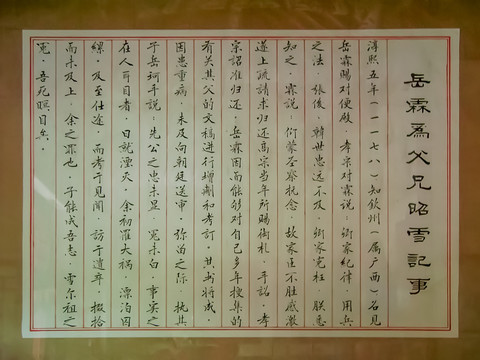 岳霖為父兄昭雪記事
淳熙五年(一一七八)知钦州(属广西)召見
岳霖賜对便殿.孝宗对霖說:卿家紀律 用兵
之法.張俊.韓世忠远不及.卿家冤枉 朕悉
知之.霖說:仰蒙圣察抚念.故家臣不胜感激
遂上疏請求归还高宗当年所賜御札.手詔.孝
宗詔准归还.岳霖因而能够对自己多年搜集的
有关其父的文稿进行增删和考訂.其书将成.
因患重病 未及向朝廷送审.弥泊之际 执其
子岳珂手說 先公之忠未显 冤未白 事实之
在人耳目者.日就湮灭 余初罹大禍 漂泊囚
縲.及至仕途.而考于見闻.訪于遺卒 掇拾
而未及上.余之罪也 子能成吾志.雪尔祖之
冤.吾死瞑目矣.